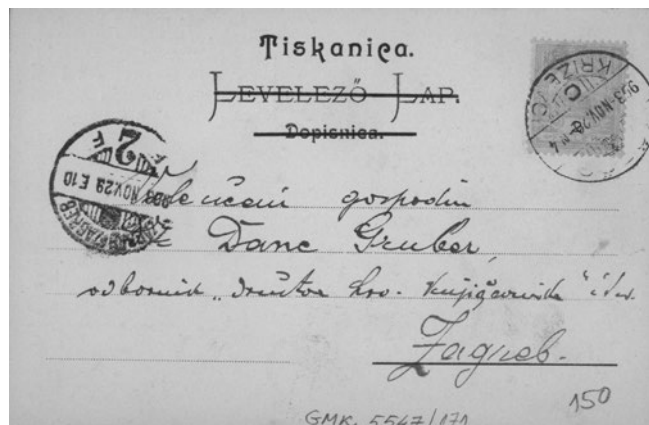 Tiskanica.
LEVELEZŐ-LAP.
Dopisnica.
KRIŽEVCI
903 NOV. 28
2
F F
903 NOV. 29 E 10
ZAGREB
Veleučeni gospodin
Đane Gruber,
odbornik „družtva hrv. književnika" i t. d.
Zagreb.
150
GMK. 5547/171